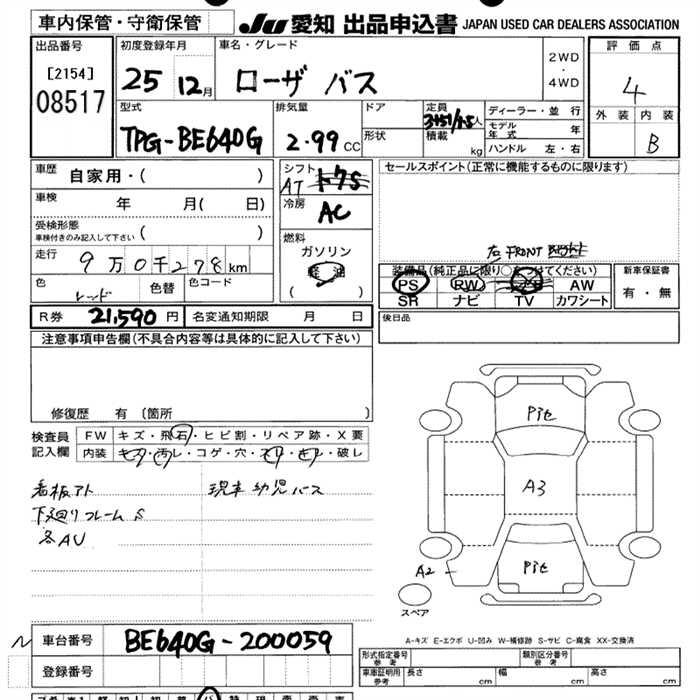 車内保管・守衛保管 JU 愛知 出品申込書 JAPAN USED CAR DEALERS ASSOCIATION
出品番号 初度登録年月 車名・グレード 評価点
[2154] 25 12月 ローザ バス 2WD・4WD 4
08517 型式 排気量 ドア 定員 ディーラー・並行 外装 内装
TPG-BE640G 2.99CC 形状 3+51/1.5人 積載 kg モデル年式 年 B
ハンドル 左・右
車歴 自家用・( ) シフト AT セールスポイント(正常に機能するものに限ります)
車検 年 月( 日) 冷房 AC
受検形態 車検付きのみ記入して下さい ( ) 燃料
走行 9万0千278km ガソリン 右 FRONT
色 レッド 色替 色コード 軽油 ( ) 装備品(純正品に限り○をつけてください) 新車保証書
PS RW AW 有・無
SR ナビ TV カワシート
R券 21,590円 名変通知期限 月 日 後日品
注意事項申告欄(不具合内容等は具体的に記入して下さい)
修復歴 有 (箇所 )
検査員記入欄 FW キズ・飛石・ヒビ割・リペア跡・X要
内装 キズ・汚レ・コゲ・穴・スリ・キレ・破レ
看板アト 現車幼児バス
下廻りフレームS
各AU
Pite
A3
Pite
A2
スペア
A-キズ E-エクボ U-凹み W-補修跡 S-サビ C-腐食 XX-交換済
車台番号 BE640G-200059
登録番号
形式指定番号 参考 類別区分番号 参考
車庫証明用 参考 長さ cm 幅 cm 高さ cm